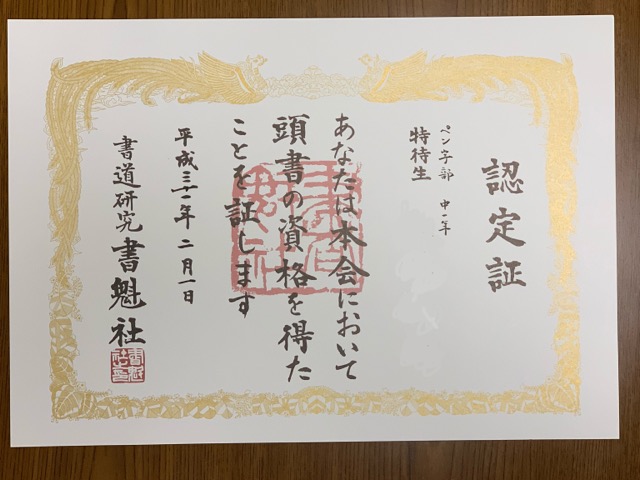 認定証
ペン字部 中一年
特待生
あなたは本会において
頭書の資格を得た
ことを証します
平成三十一年二月一日
書道研究 書魁社
書魁社